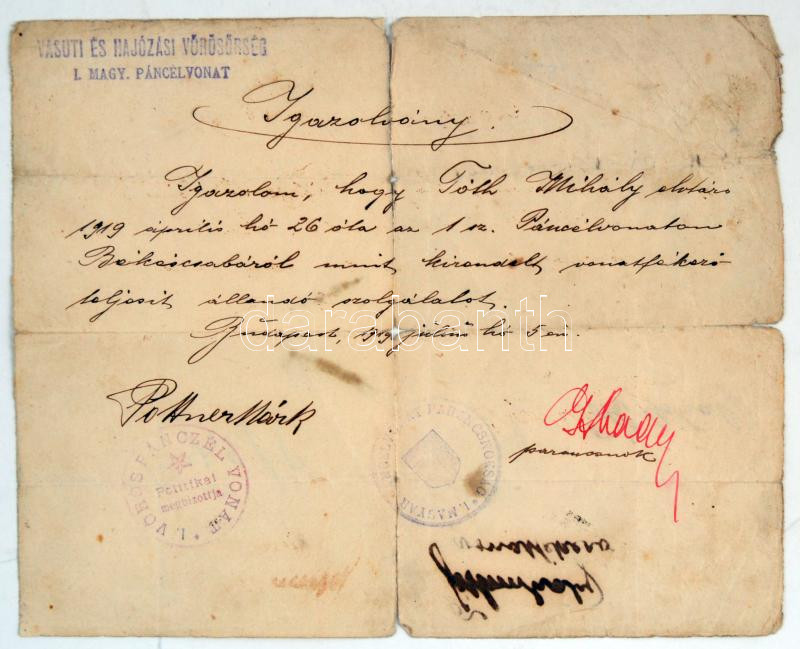 VASUTI ÉS HAJÓZÁSI VÖRÖSŐRSÉG
I. MAGY. PÁNCÉLVONAT
Igazolvány.
Igazolom, hogy Tóth Mihály elvtárs
1919 április hó 26 óta az 1 sz. Páncélvonaton
Békéscsabáról mint kirendelt vonatfékező
teljesit állandó szolgálatot.
Budapest, 1919 július hó 5 én.
darabanth
Pottner Márk
parancsnok
I. VÖRÖS PÁNCZÉL VONAT
Politikai
megbizottja
I. MAGYAR